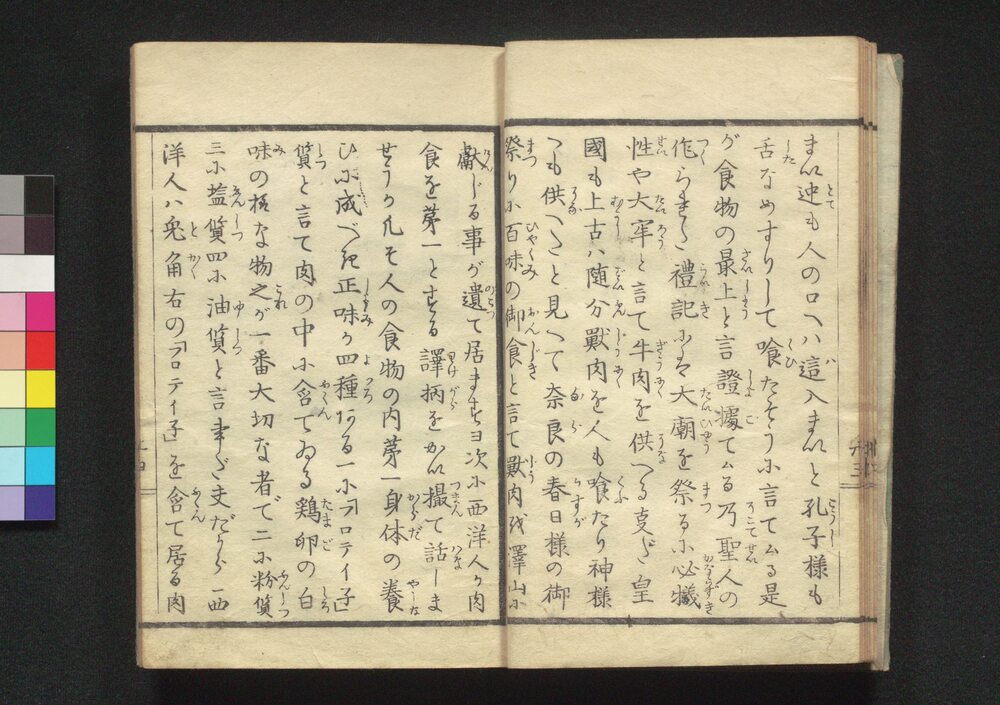 まい迚も人の口へハ這入まいと孔子様も
舌なめずりして喰たそうに言てムる是
が食物の最上と言證據でムる乃聖人の
作られた禮記にも大廟を祭るに必犠
牲や大牢と言て牛肉を供へる支だ皇
國も上古ハ随分獸肉を人も喰たり神様
へも供へたと見へて奈良の春日様の御
祭りに百味の御食と言て獸肉を澤山に
獻じる事が遺て居ますヨ次に西洋人が肉
食を第一とする譯柄をかい撮て話しま
せうが凡そ人の食物の内第一身体の養
ひに成べき正味が四種ある一に「プロテイ子」
質と言て肉の中に含てゐる鶏卵の白
味の様な物之が一番大切な者で二に粉質
三に塩質四に油質と言ますだ夫だから西
洋人ハ兎角右の「プロテイ子」を含て居る肉